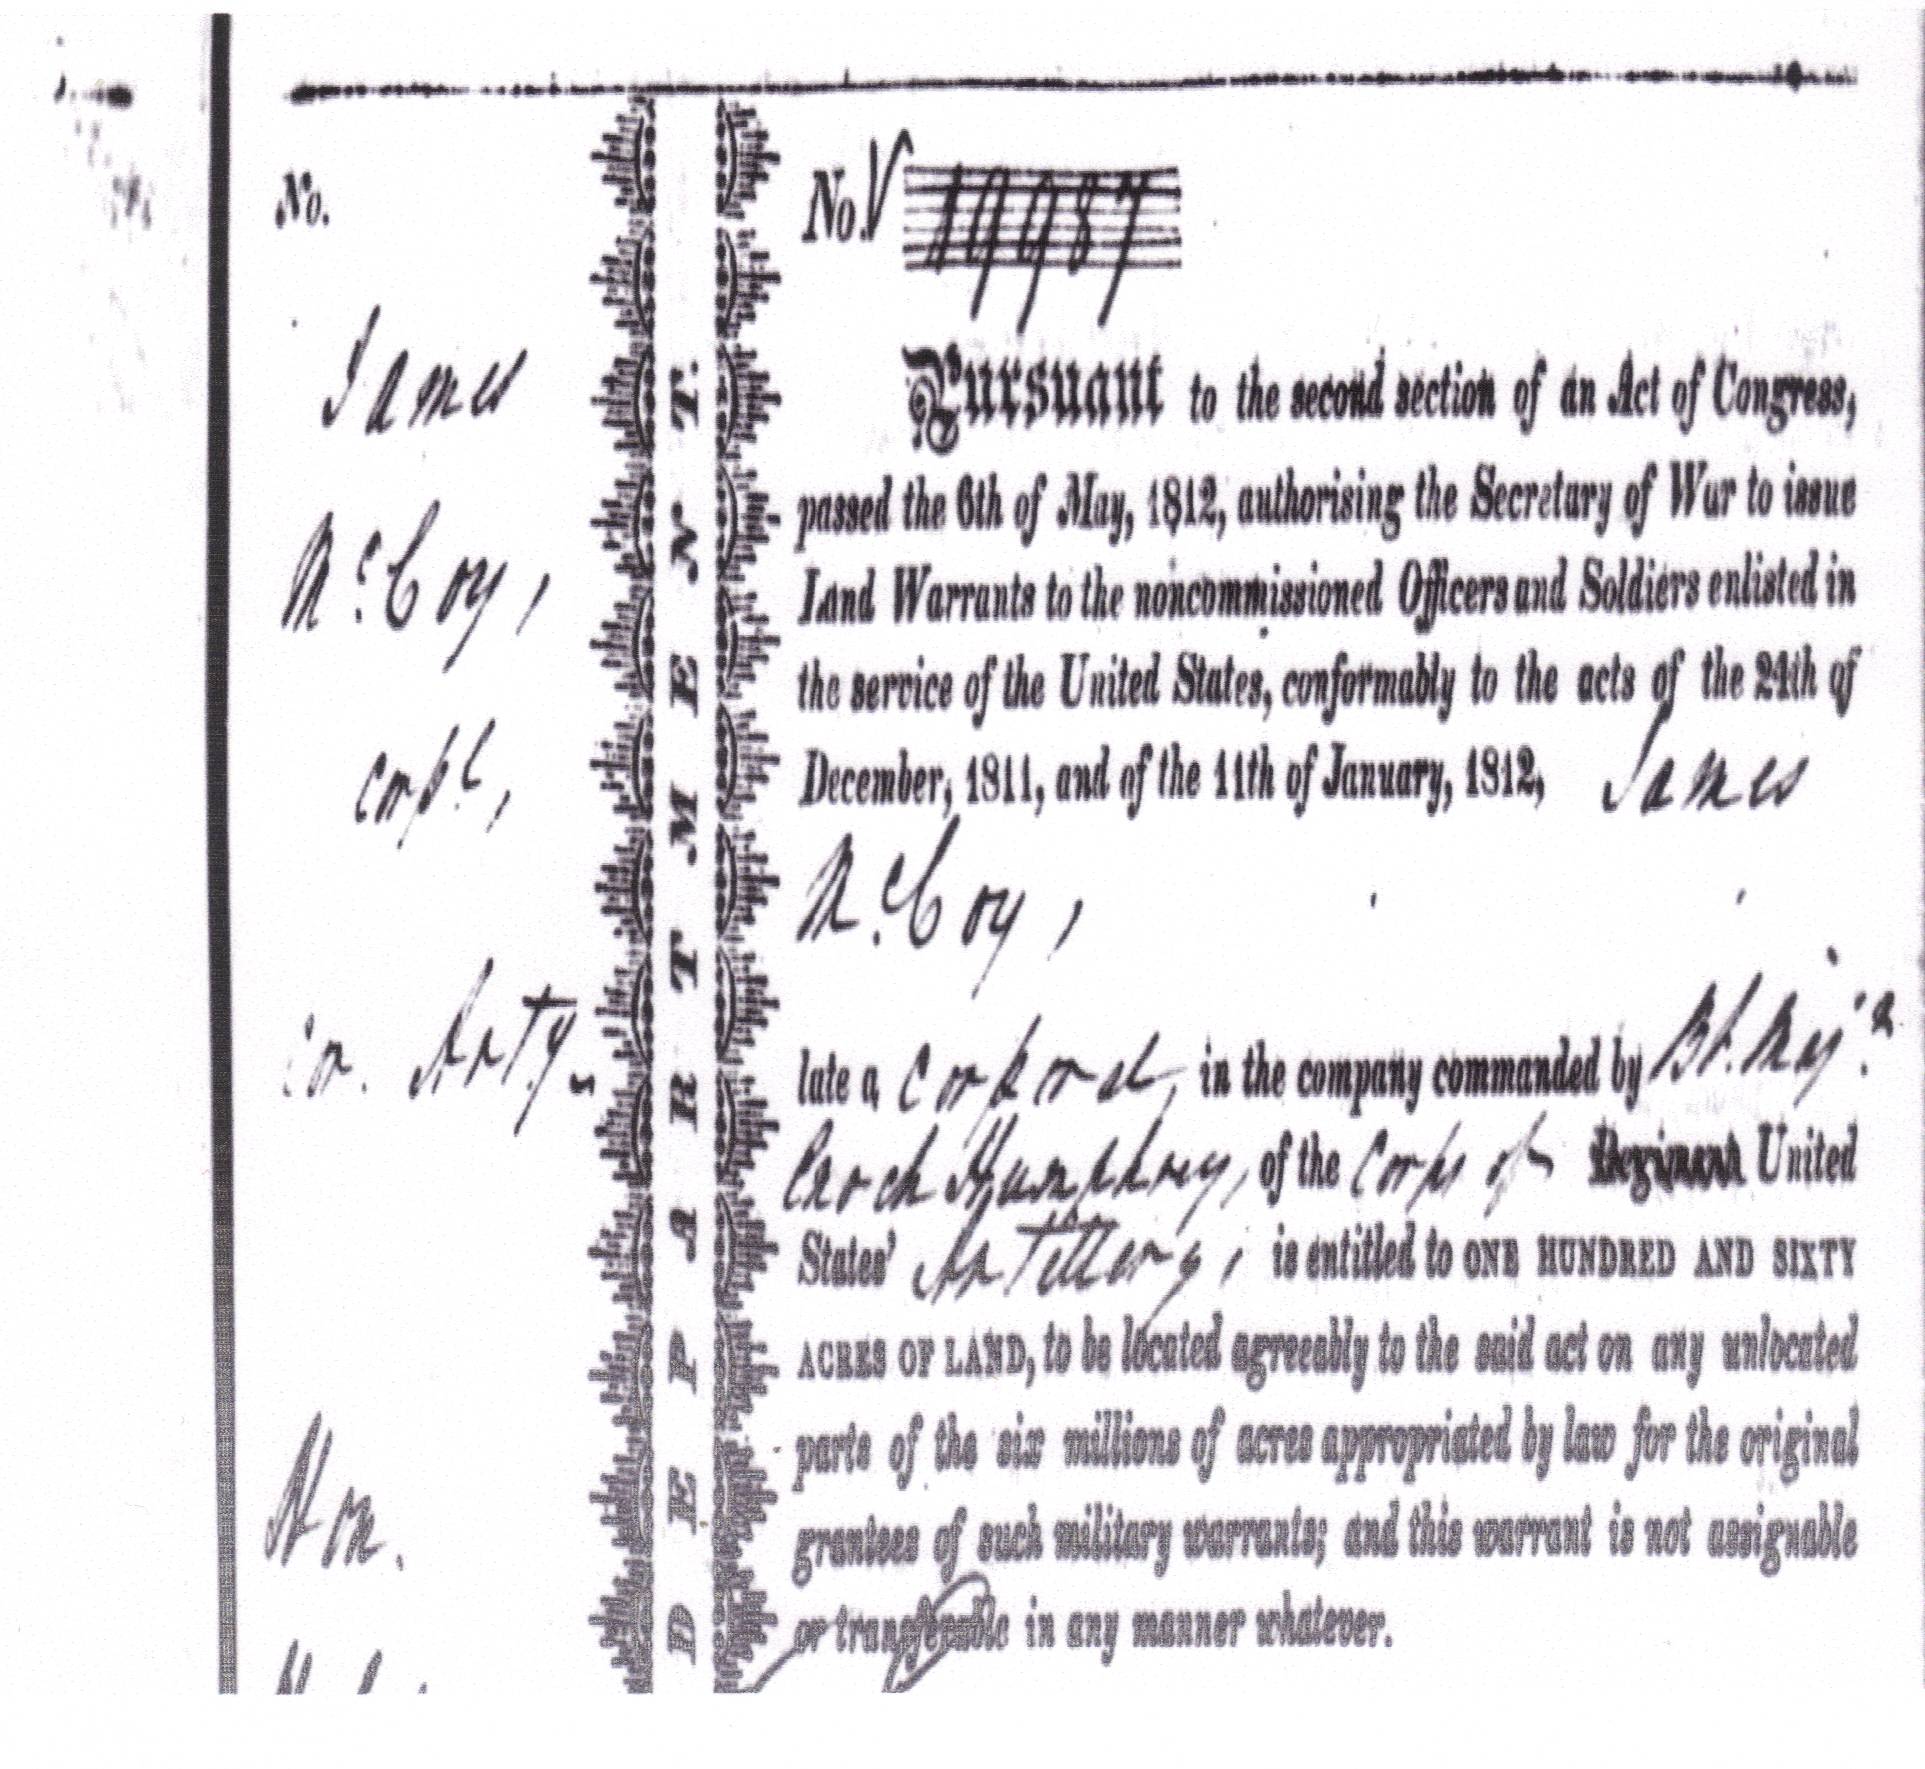 No.
James
McCoy,
corpl,
Cor. Arty.
Hon.
DEPARTMENT.
No. 19987
Pursuant to the second section of an Act of Congress,
passed the 6th of May, 1812, authorising the Secretary of War to issue
Land Warrants to the noncommissioned Officers and Soldiers enlisted in
the service of the United States, conformably to the acts of the 24th of
December, 1811, and of the 11th of January, 1812, James
McCoy,
late a Corporal, in the company commanded by Bt. Majr.
Enoch Humphrey, of the Corps of Regiment United
States' Artillery, is entitled to ONE HUNDRED AND SIXTY
ACRES OF LAND, to be located agreeably to the said act on any unlocated
parts of the six millions of acres appropriated by law for the original
grantees of such military warrants; and this warrant is not assignable
or transferable in any manner whatever.